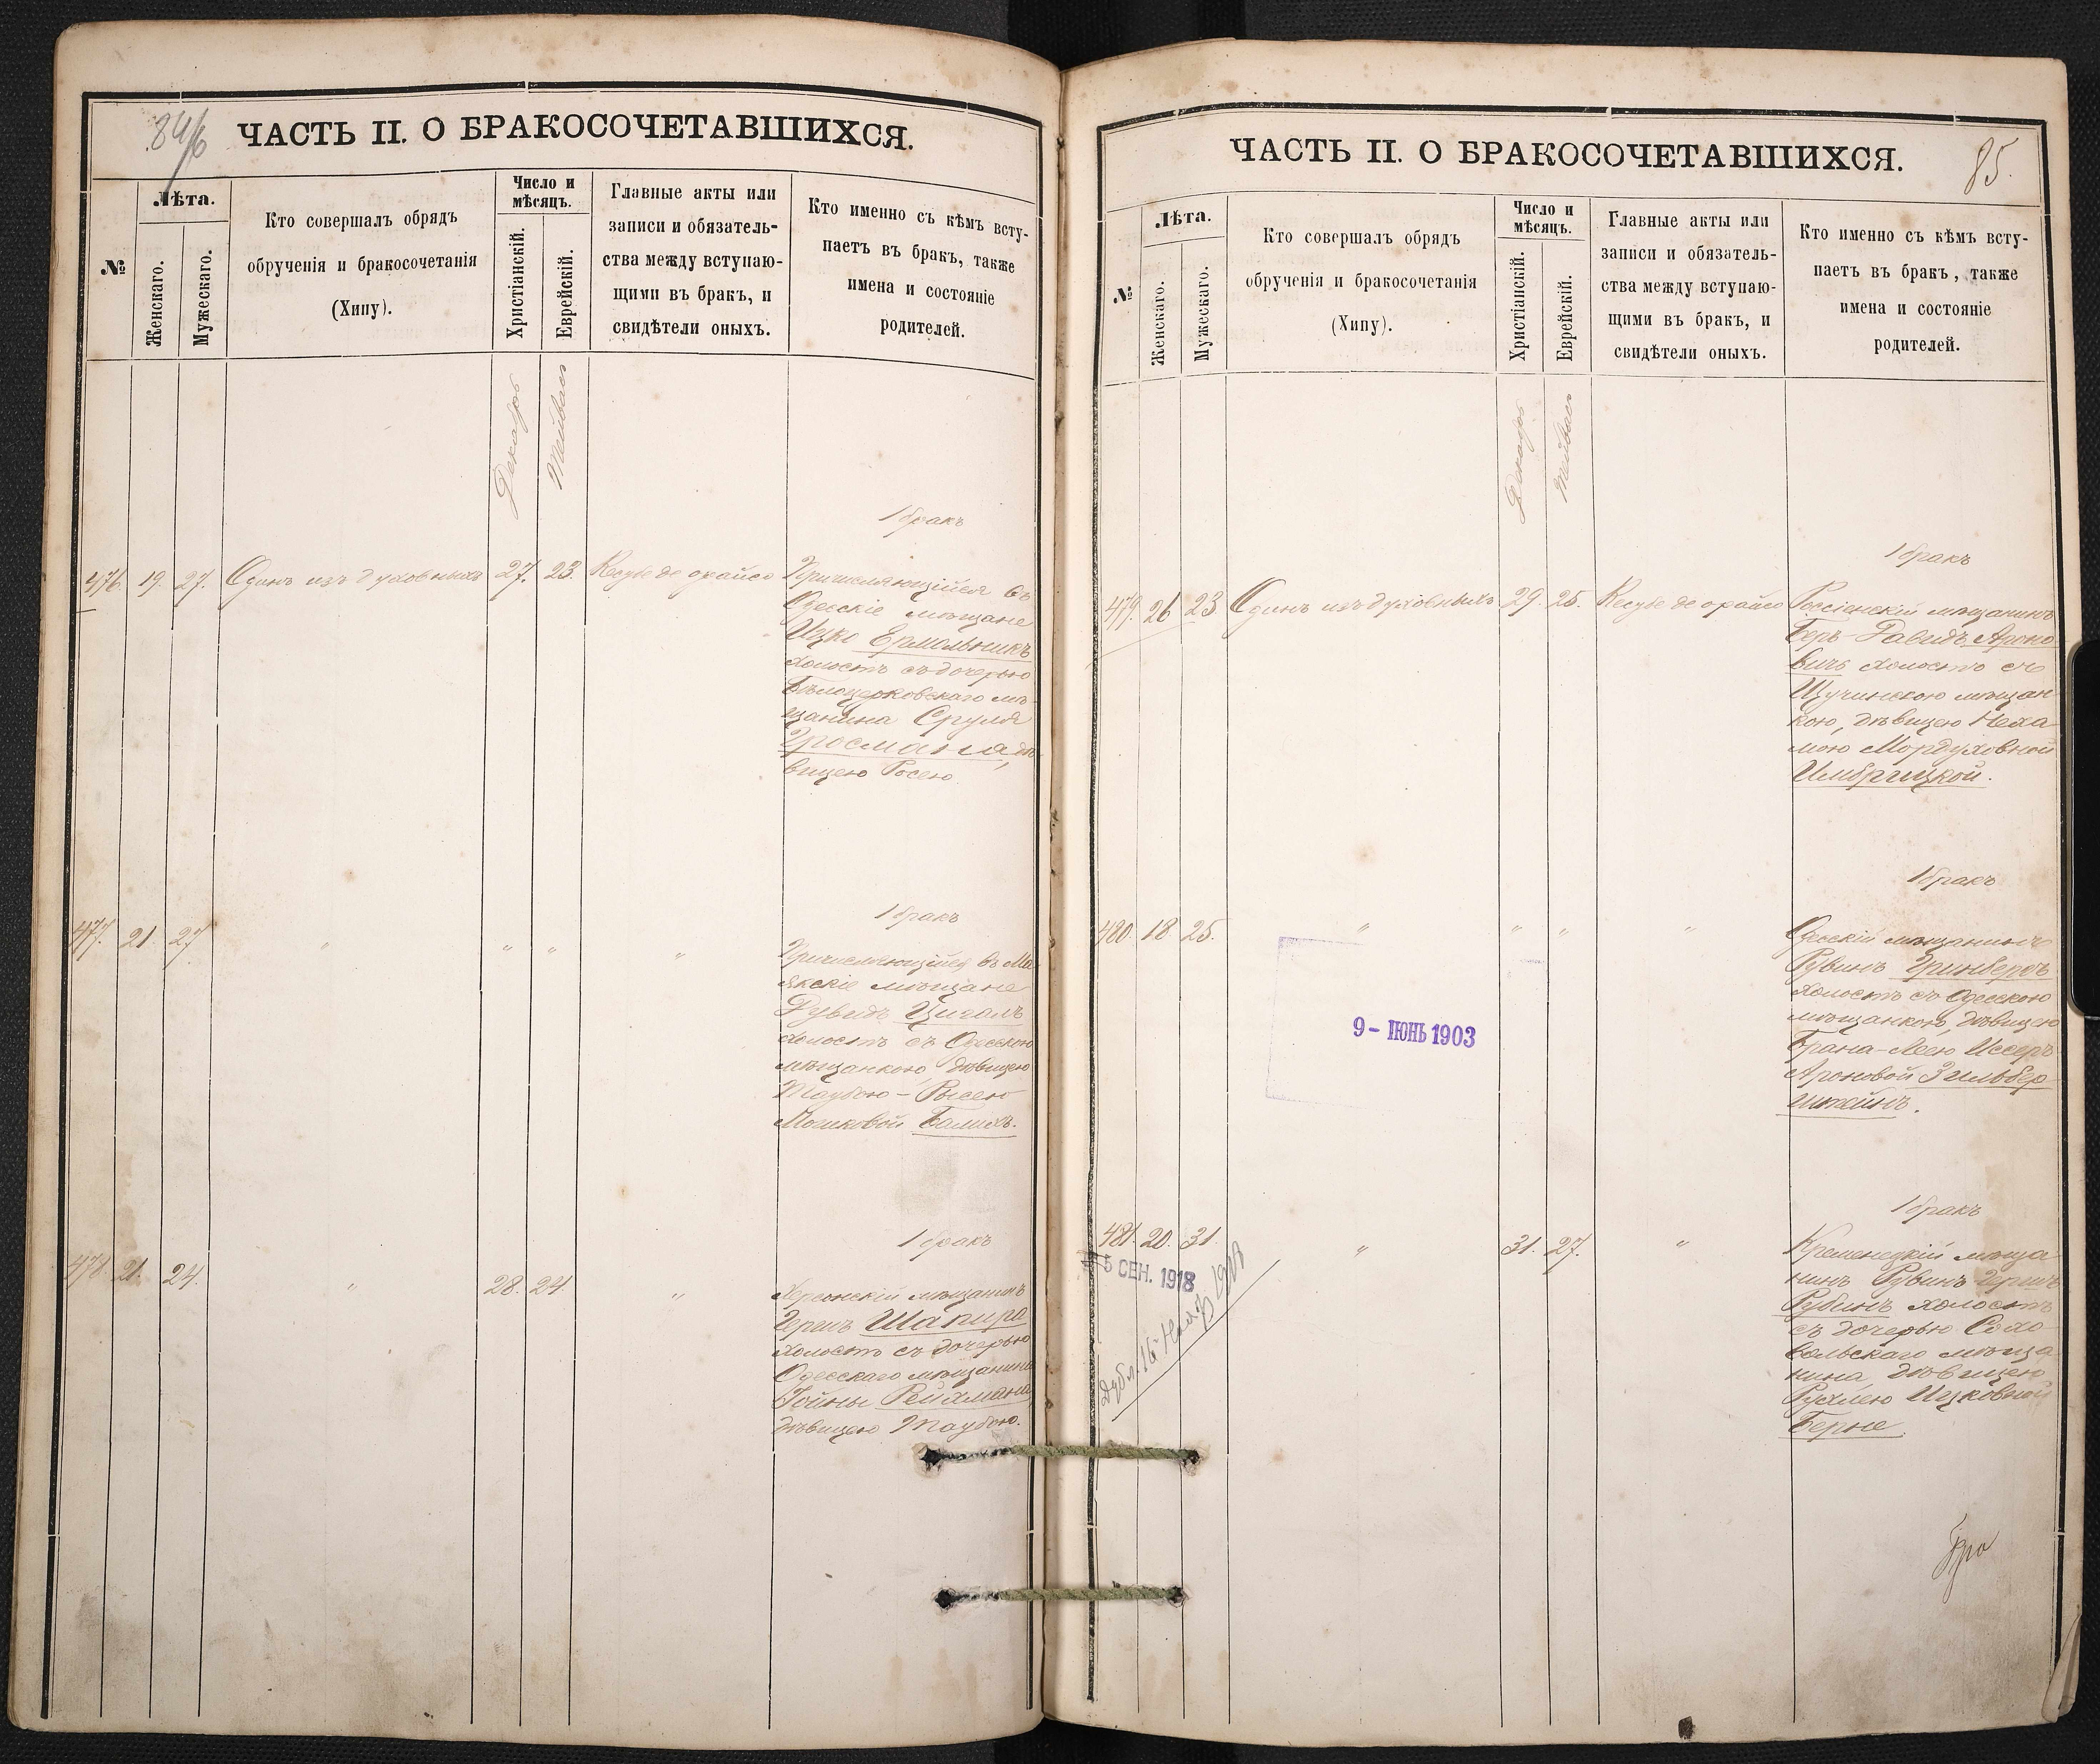 84/6
ЧАСТЬ II. О БРАКОСОЧЕТАВШИХСЯ.
№
Лѣта.
Женскаго.
Мужескаго.
Кто совершалъ обрядъ
обрученія и бракосочетанія
(Хипу).
Число и
мѣсяцъ.
Христіанскій.
Еврейскій.
Главные акты или
записи и обязатель-
ства между вступаю-
щими въ бракъ, и
свидѣтели оныхъ.
Кто именно съ кѣмъ всту-
паетъ въ бракъ, также
имена и состояніе
родителей.
Декабрь
Тейвасъ
1 бракъ
476. 19. 27. Одинъ изъ духовныхъ 27. 23. Кесубе де орайсо
Причисляющійся въ
Одесскіе мѣщане
Ицко Ермольникъ
холостъ съ дочерью
Бѣлоцерковскаго мѣ-
щанина Сруля
Гросмана, дѣ-
вицею Росею
1 бракъ
477. 21. 27. " " " "
Причисляющійся въ Ма-
якскіе мѣщане
Дувидъ Цигаль
холостъ съ Одесскою
мѣщанкою, дѣвицею
Таубою-Рысею
Мошковой Балихъ.
1 бракъ
478. 21. 24. " 28. 24 "
Херсонскій мѣщанинъ
Гершъ Шапиро
холостъ съ дочерью
Одесскаго мѣщанина
Іойны Рейхмана,
дѣвицею Таубою.
ЧАСТЬ II. О БРАКОСОЧЕТАВШИХСЯ.
85.
№
Лѣта.
Женскаго.
Мужескаго.
Кто совершалъ обрядъ
обрученія и бракосочетанія
(Хипу).
Число и
мѣсяцъ.
Христіанскій.
Еврейскій.
Главные акты или
записи и обязатель-
ства между вступаю-
щими въ бракъ, и
свидѣтели оныхъ.
Кто именно съ кѣмъ всту-
паетъ въ бракъ, также
имена и состояніе
родителей.
Декабрь
Тейвасъ
1 бракъ
479. 26 23 Одинъ изъ духовныхъ 29. 25. Кесубе де орайсо
Россіенскій мѣщанинъ
Беръ-Давидъ Ароно-
вичъ холостъ съ
Щучинскою мѣщан-
кою, дѣвицею Неха-
мою Мордуховной
Имбрицкой.
1 бракъ
480. 18 25. " " " "
Одесскій мѣщанинъ
Рувинъ Гринбергъ
холостъ съ Одесскою
мѣщанкою, дѣвицею
Брана-Леею Иссеръ-
Ароновой Зильбер-
штейнъ.
9- ИЮНЬ 1903
1 бракъ
481. 20. 31. " 31. 27. "
Кременецкій мѣща-
нинъ Рувинъ Гершъ
Рубинъ холостъ
съ дочерью Сохо-
вольскаго мѣща-
нина, дѣвицею
Рухлею Ицковной
Берне.
5 СЕН. 1918
Бра